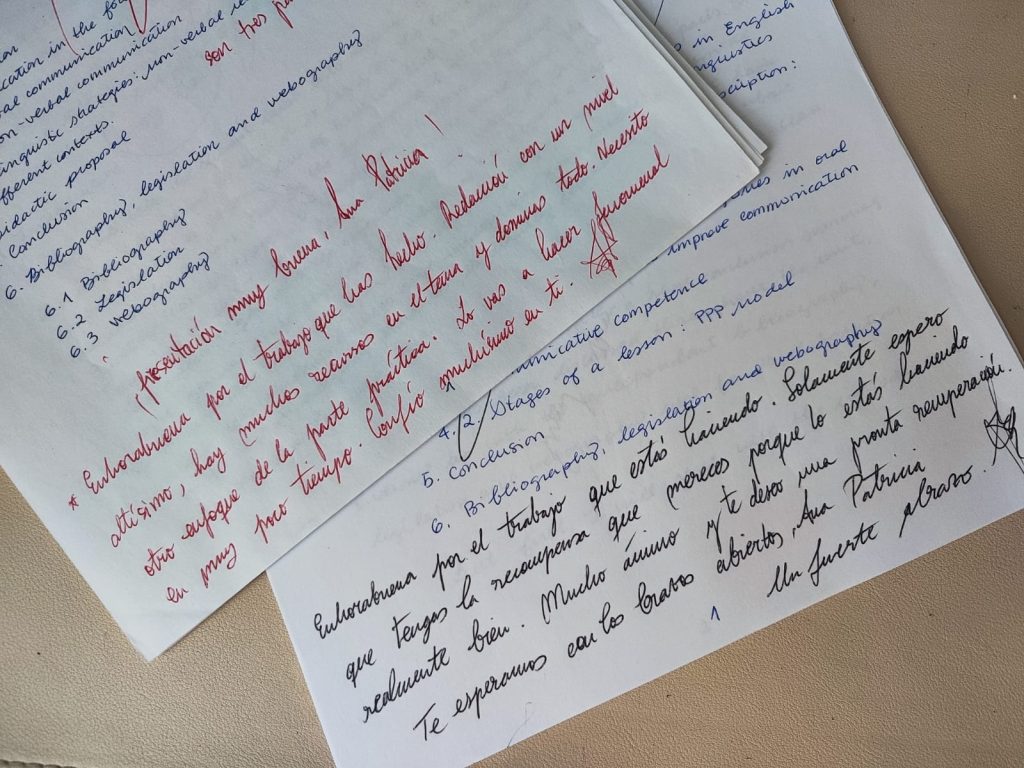 cation in the
al communication
on-verbal communication
linguistic strategies: non-verbal
fferent contexts.
didactic proposal
Conclusion
6. Bibliography, legislation and webography
6.1 Bibliography
6.2 Legislation
6.3 Webography
son tres
¡Presentación muy buena, Ana Patricia!
* Enhorabuena por el trabajo que has hecho. Redacción con un nivel
altísimo, hay muchos recursos en el tema y dominas todo. Necesito
otro enfoque de la parte práctica. Lo vas a hacer fenomenal
en muy poco tiempo. Confío muchísimo en ti.
in English
nguistics
scription:
in oral
improve communication
unicative competence
4.2. Stages of a lesson: PPP model
5. Conclusion
6. Bibliography, legislation and webography
Enhorabuena por el trabajo que estás haciendo. Solamente espero
que tengas la recompensa que mereces porque lo estás haciendo
realmente bien. Mucho ánimo y te deseo una pronta recuperación.
Te esperamos con los brazos abiertos, Ana Patricia
Un fuerte abrazo.
1